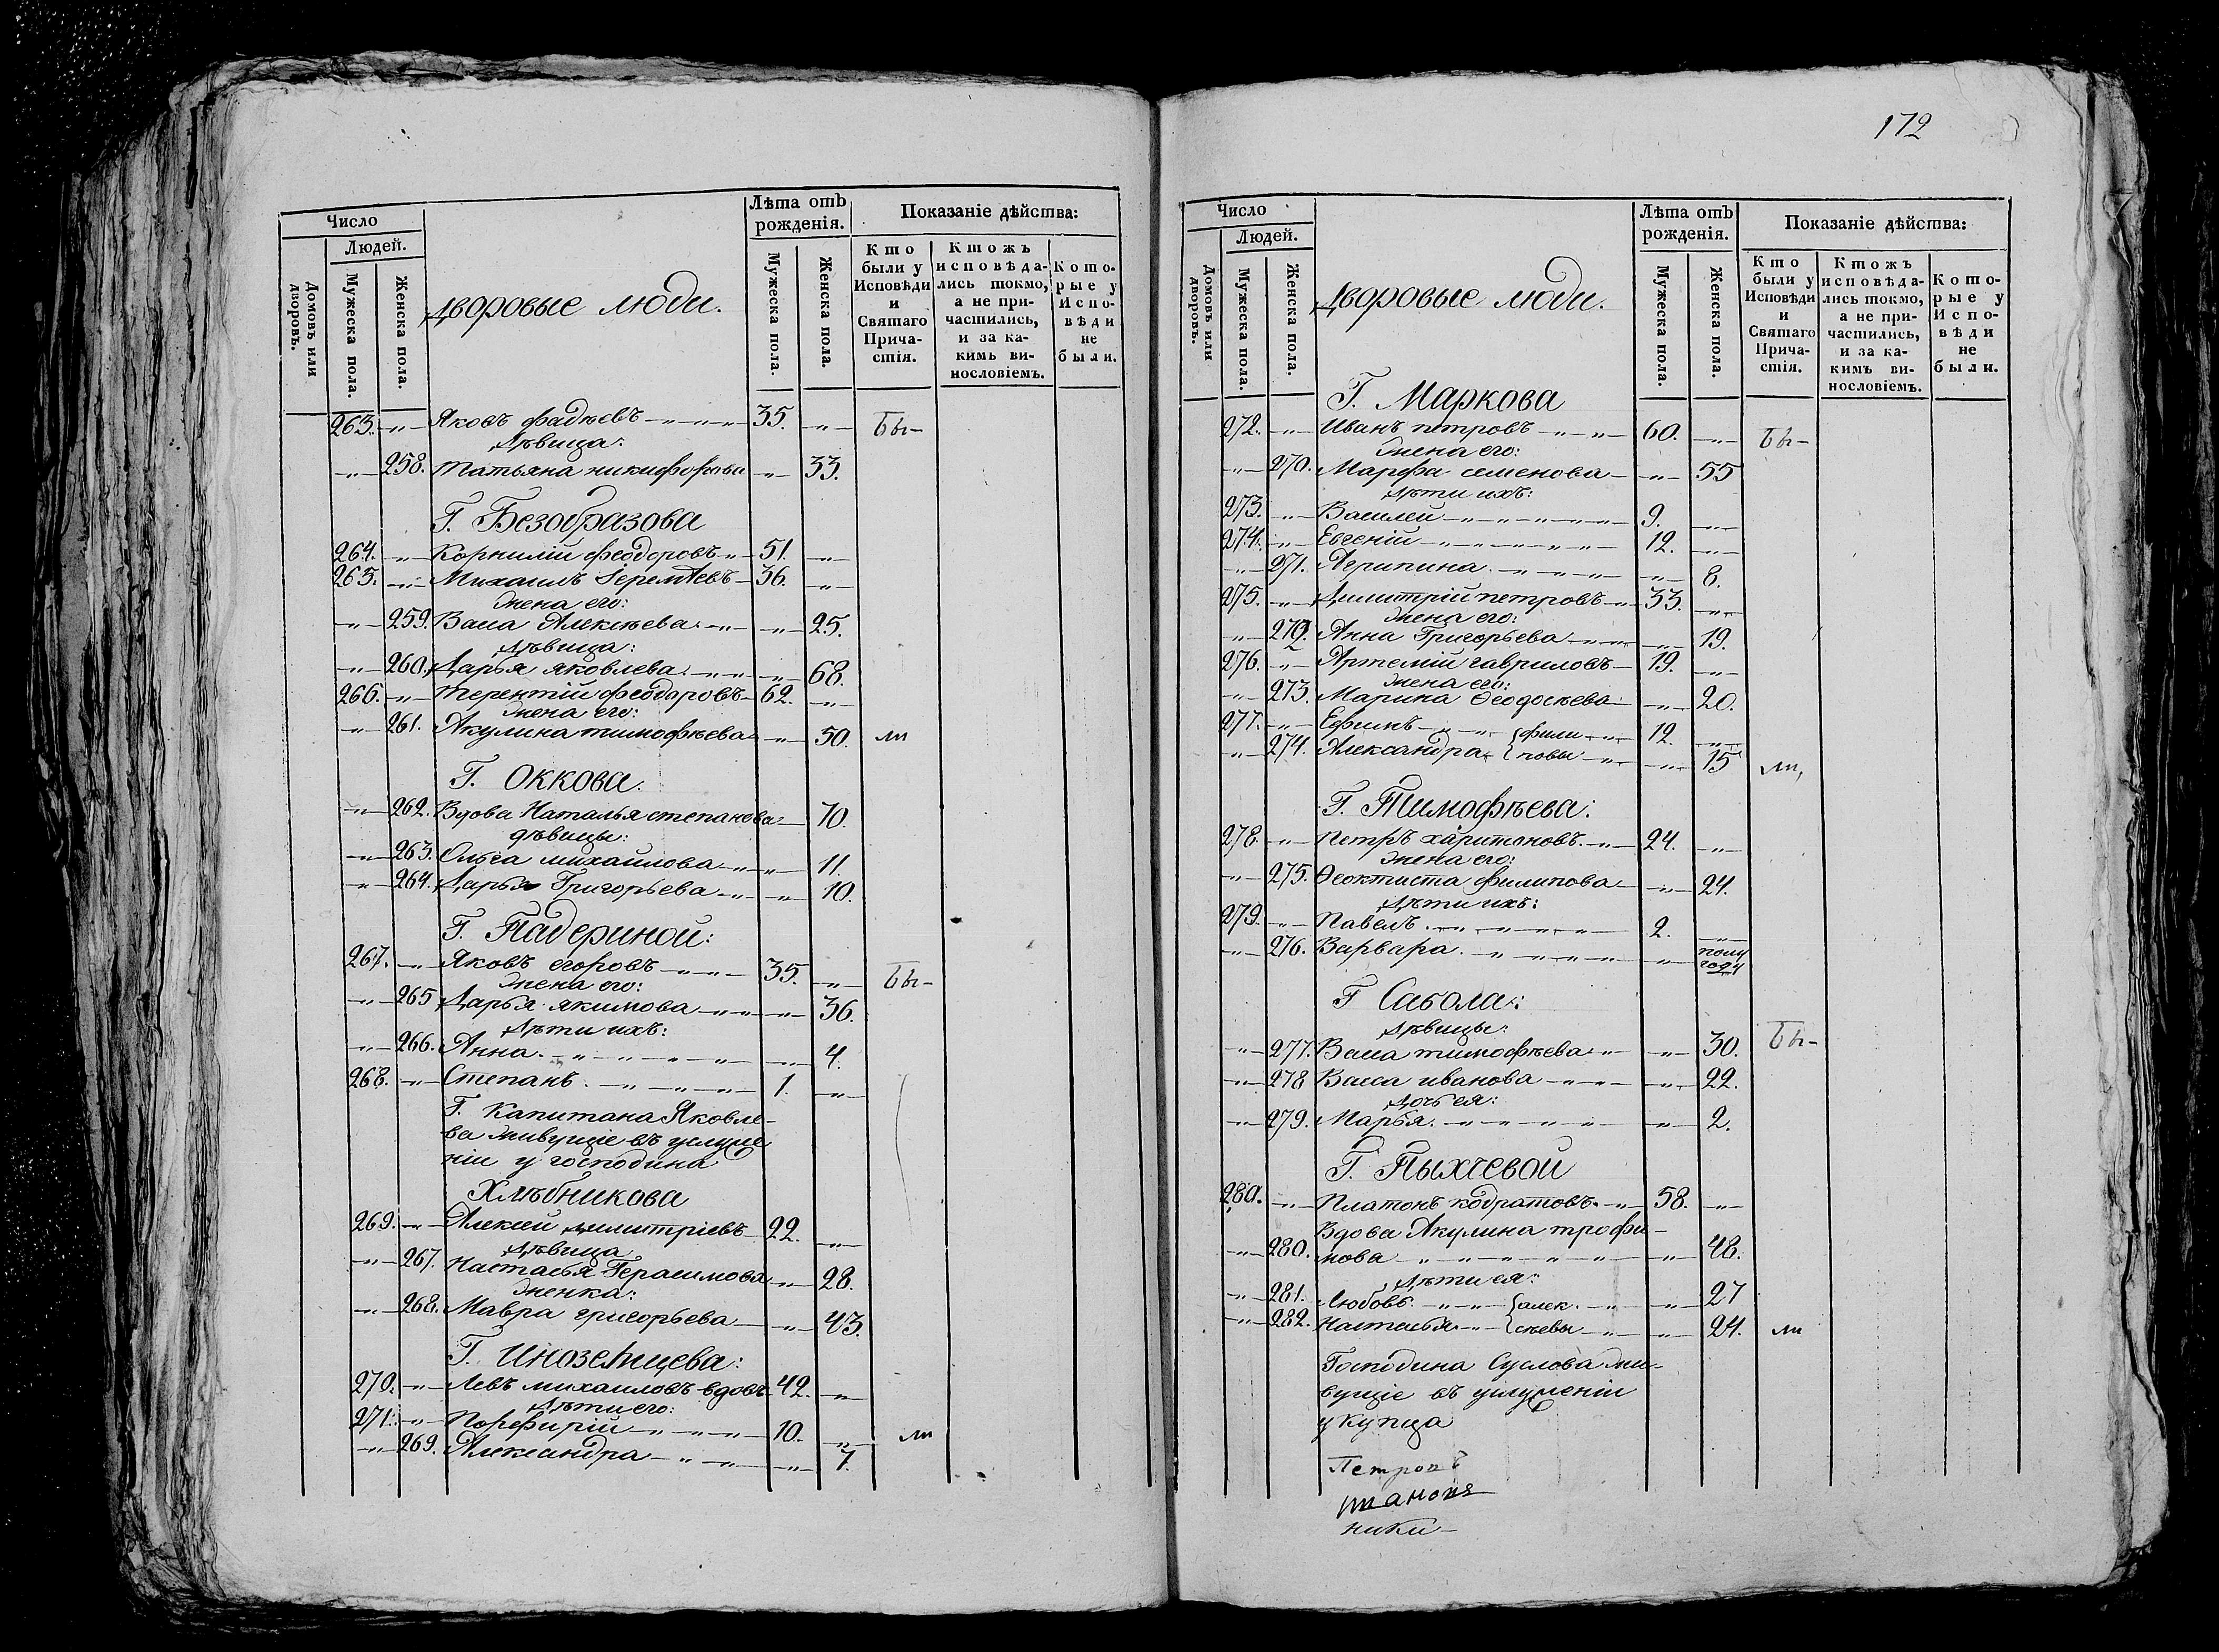 Число
Людей.
Домовъ или дворовъ.
Мужеска пола.
Женска пола.
Дворовые люди.
Лѣта отъ рожденія.
Мужеска пола.
Женска пола.
Показаніе дѣйства:
Кто были у Исповѣди и Святаго Причастія.
Ктожъ исповѣдались токмо, а не причастились, и за какимъ винословіемъ.
Которые у Исповѣди не были.
263. -"- Яковъ Фадѣевъ -"-"-"- 35. -"- бы-
Дѣвица:
-"- 258. Татьяна никифорова -"- 33.
Г. Безобразова
264. -"- Корнилій Феодоровъ -"- 51. -"-
265. -"- Михаилъ Іеремѣевъ - 36. -"-
Жена его:
-"- 259. Васса Алексѣева -"- -"- 25.
Дѣвица:
-"- 260. Дарья яковлева -"-"- -"- 68.
266. -"- Терентій Феодоровъ - 62. -"-
Жена его:
-"- 261. Акулина тимофѣева -"- 50. ли
Г. Оккова.
-"- 262. Вдова Наталья степанова - 70.
дѣвицы:
-"- 263. Ольга михайлова -"-"- 11.
-"- 264. Дарья Григорьева -"- -"- 10.
Г. Падериной:
267. -"- Яковъ егоровъ -"-"- 35. -"- бы-
Жена его:
-"- 265 Дарья якимова -"-"-"- 36.
Дѣти ихъ:
-"- 266. Анна. -"-"-"-"- -"- 4.
268. -"- Степанъ. -"-"-"- 1. -"-
Г. Капитана Яковле-
ва живущіе въ услуже
ніи у господина
Хлѣбникова
269. -"- Алексей димитріевъ - 22. -"-
Дѣвица
-"- 267. Настасья Герасимова -"- 28.
Женка:
-"- 268. Мавра григорьева -"- 43.
Г. Иноземцева:
270. -"- Левъ михаиловъ вдовъ - 42. -"-
Дѣти его:
271. -"- Порфирій -"-"-"- 10. -"- ли
-"- 269. Александра -"-"- -"- 7.
172
Число
Людей.
Домовъ или дворовъ.
Мужеска пола.
Женска пола.
Дворовые люди.
Лѣта отъ рожденія.
Мужеска пола.
Женска пола.
Показаніе дѣйства:
Кто были у Исповѣди и Святаго Причастія.
Ктожъ исповѣдались токмо, а не причастились, и за какимъ винословіемъ.
Которые у Исповѣди не были.
Г. Маркова
272. -"- Иванъ петровъ -"-"- 60. -"- бы-
Жена его:
-"- 270. Марфа семенова - -"- 55
Дѣти ихъ:
273. -"- Василей -"-"-"-"-"- 9. -"-
274. -"- Евгеній -"-"-"-"-"- 12. -"-
-"- 271. Агрипина. -"-"-"- -"- 8.
275. -"- Димитрій петровъ -"- 33. -"-
Жена его:
-"- 272. Анна Григорьева -"-"- -"- 19.
276. -"- Артемій гавриловъ - 19. -"-
Жена его:
-"- 273. Марина Ѳеодосѣева - -"- 20.
277. -"- Ефимъ -"-"- { фили -"- 12. -"-
-"- 274. Александра { повы -"- -"- 15 ли,
Г. Тимофѣева:
278. -"- Петръ харитоновъ. -"- 24. -"-
Жена его:
-"- 275. Ѳеоктиста филипова - -"- 24.
Дѣти ихъ:
279. -"- Павелъ. -"-"-"-"- 2. -"-
-"- 276. Варвара. -"-"-"-"- -"- полу
году
Г Сабола:
Дѣвицы:
-"- 277. Васса тимофѣева -"- -"- 30. бы-
-"- 278 Васса иванова -"-"- -"- 22.
Дочь ея:
-"- 279. Марья. -"-"-"-"- -"- 2.
Г. Пыхчевой
280. -"- Платонъ кодратовъ. -"- 58. -"-
Вдова Акулина трофи-
-"- 280. мова -"-"-"-"-"- -"- 48.
Дѣти ея:
-"- 281. Любовь. -"-"- { алек. -"- -"- 27
-"- 282. Настасья -"- { сѣевы -"- -"- 24. ли
Господина Суслова жи-
вущіе въ услуженіи
у купца